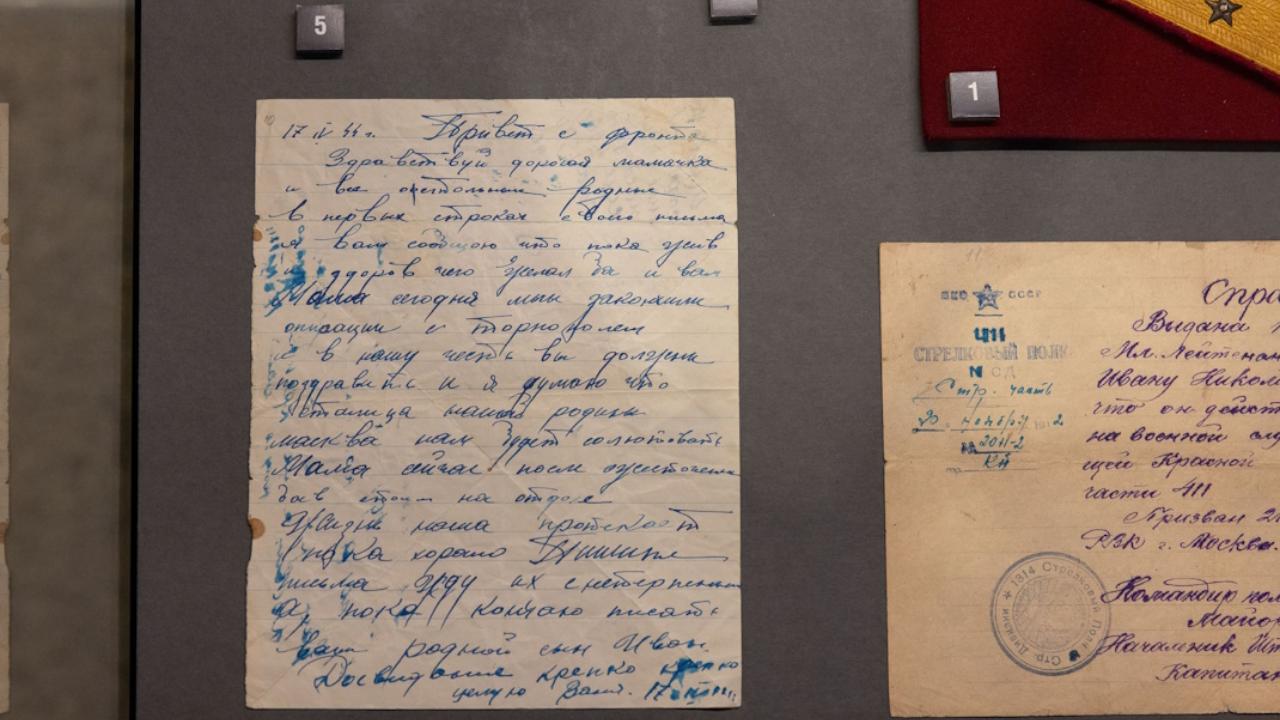 5
1
17 IV 44 г. Привет с фронта
Здравствуй дорогая мамачка
и все остольныи родныи
в первых строках своего письма
я Вам сообщою что пока жив
и здоров чего желал бы и вам
Мама сегодня мы закончили
операции с торнополем
и в нашу честь вы должны
поздравить и я думаю что
столица нашей родины
масква нам будет солютовать
Мама сейчас после
стоим на отдыхе
Жизнь наша протекает
пока хорошо Пишите
письма жду их с нетерпением
а, пока кончаю писать
Ваш родной сын Иван.
Досвидание крепко крепко
целую Вани. 17
НКО СССР
411
СТРЕЛКОВЫЙ ПОЛК
СД
Стр. часть
20 ноября 1942
№ 2011-2
Спра
Выдана
Мл. Лейтенан
Ивану Никол
что он дейст
на военной слу
щей Красной
части 411
Призван 2
РВК г. Москва.
Командир пол
Майор
Начальник Шт
Капитан
1314 Стрелковый Полк Стр. Дивизии